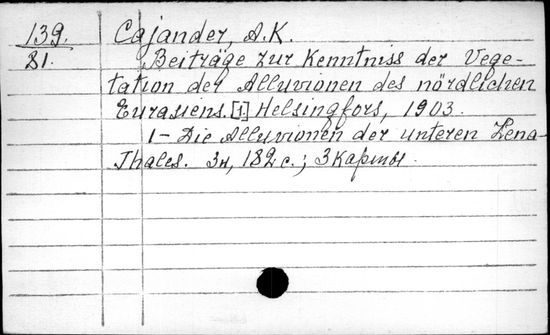 139. Cajander, A.K.
81. Beiträge zur Kenntniss der Vege-
tation der Alluvionen des nördlichen
Eurasiens.[1.] Helsingfors, 1903.
1 - Die Alluvionen der unteren Lena-
Thales. 3н, 182 с.; 3 карты.